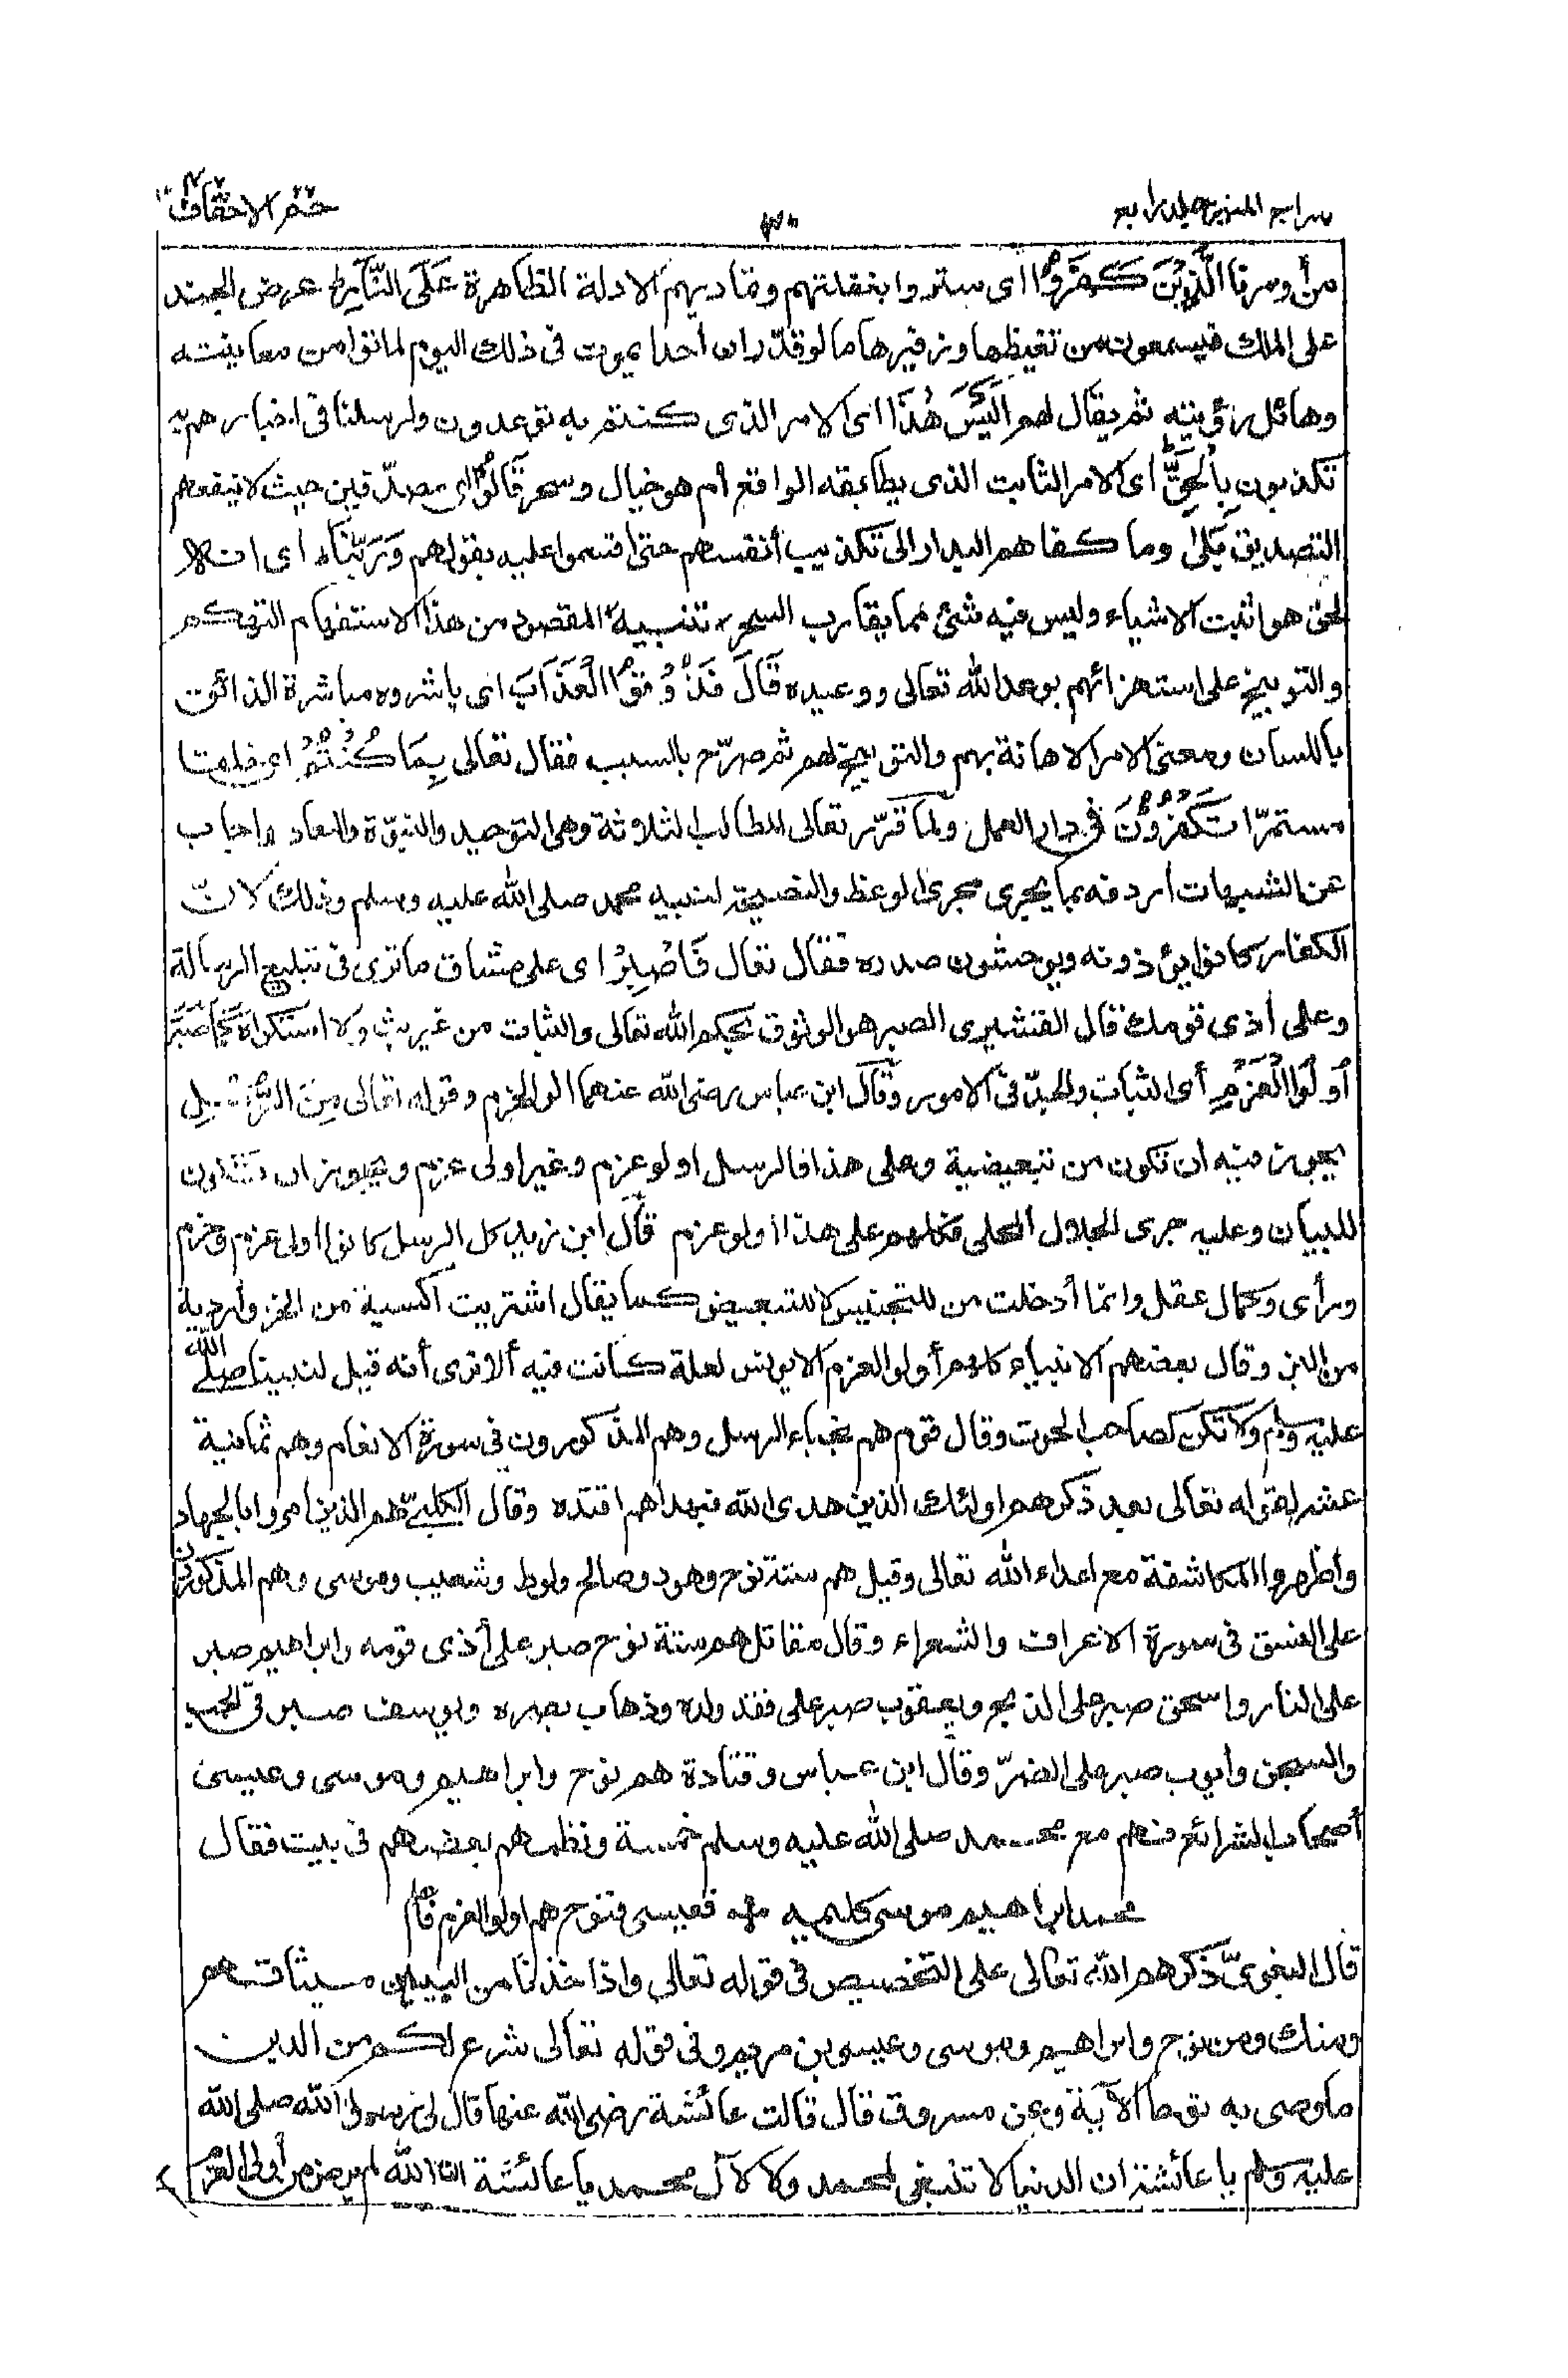 سراج المنير جلد رابع ٣٠ حٰم الاحقاف
من أومرنا الَّذِيْنَ كَفَرُوْا اى ستروا بغفلتهم وتماديهم الادلة الظاهرة عَلَى النَّارِط عرض الجند
على الملك فيسمعون من تغيظها وزفيرها ما لو قدّر ان احدا يموت فى ذلك اليوم لماتوا من معاينته
وهائل رؤيته ثم يقال لهم اَلَيْسَ هٰذَا اى الامر الذى كنتم به توعدون ولرسلنا فى اخبارهم به
تكذبون بِالْحَقِّ ط اى الامر الثابت الذى يطابقه الواقع أم هو خيال وسحر قَالُوْا اى مصدّقين حيث لا ينفعهم
التصديق بَلٰى وما كفاهم البدار الى تكذيب أنفسهم حتى أقسموا عليه بقولهم وَرَبِّنَا ط اى انه لا
لحق هو اثبت الاشياء وليس فيه شئ مما يقارب السحر تنبيه المقصود من هذا الاستفهام التهكم
والتوبيخ على استهزائهم بوعد الله تعالى ووعيده قَالَ فَذُوْقُوا الْعَذَابَ اى باشروه مباشرة الذائق
باللسان ومعنى الامر الاهانة بهم والتوبيخ لهم ثم صرّح بالسبب فقال تعالى بِمَا كُنْتُمْ اى خلقا
مستمرّا تَكْفُرُوْنَ فى دار العمل ولما قرّر تعالى المطالب الثلاثة وهى التوحيد والنبوّة والمعاد واجاب
عن الشبهات أردفه بما يجرى مجرى الوعظ والنصيحة لنبيه محمد صلى الله عليه وسلم وذلك لانّ
الكفار كانوا يؤذونه ويوحشون صدره فقال تعالى فَاصْبِرْ اى على مشاق ما ترى فى تبليغ الرسالة
وعلى أذى قومك قال القشيرى الصبر هو الوثوق بحكم الله تعالى والثبات من غير بث ولا استكراه كَمَا صَبَرَ
أُولُوا الْعَزْمِ أى الثبات والجدّ فى الامور وقال ابن عباس رضى الله عنهما الوالحزم وقوله تعالى مِنَ الرُّسُلِ
يجوز فيه أن تكون من تبعيضية وعلى هذا فالرسل اولو عزم وغير اولى عزم ويجوز ان تكون
للبيان وعليه جرى الجلال المحلى فكلهم على هذا اولو عزم قال ابن زيد كل الرسل كانوا اولى عزم وحزم
ورأى وكمال عقل وانما أدخلت من للتجنيس لا للتبعيض كما يقال اشتريت اكسية من الخز وأردية
من البز وقال بعضهم الانبياء كلهم أولو العزم الا يونس لعلة كانت فيه ألا ترى أنه قيل لنبينا صلى الله
عليه وسلم ولا تكن كصاحب الحوت وقال قوم هم نجباء الرسل وهم المذكورون فى سورة الانعام وهم ثمانية
عشر لقوله تعالى بعد ذكرهم اولئك الذين هدى الله فبهداهم اقتده وقال الكلبىّ هم الذين امروا بالجهاد
واظهروا المكاشفة مع اعداء الله تعالى وقيل هم ستة نوح وهود وصالح ولوط وشعيب وموسى وهم المذكورون
على النسق فى سورة الاعراف والشعراء وقال مقاتل هم ستة نوح صبر على أذى قومه وابراهيم صبر
على النار واسحق صبر على الذبح ويعقوب صبر على فقد ولده وذهاب بصره ويوسف صبر فى الجب
والسجن وأيوب صبر على الضرّ وقال ابن عباس وقتادة هم نوح وابراهيم وموسى وعيسى
أصحاب الشرائع فهم مع محمد صلى الله عليه وسلم خمسة ونظمهم بعضهم فى بيت فقال
محمد ابراهيم موسى كليمه فعيسى فنوح هم اولو العزم فاعلم
قال البغوىّ ذكرهم الله تعالى على التخصيص فى قوله تعالى واذ اخذنا من النبيين ميثاقهم
ومنك ومن نوح وابراهيم وموسى وعيسى بن مريم وفى قوله تعالى شرع لكم من الدين
ما وصى به نوحا الآية وعن مسروق قال قالت عائشة رضى الله عنها قال لى رسول الله صلى الله
عليه وسلم يا عائشة ان الدنيا لا تنبغى لمحمد ولا لآل محمد يا عائشة ان الله لم يرض من أولى العزم